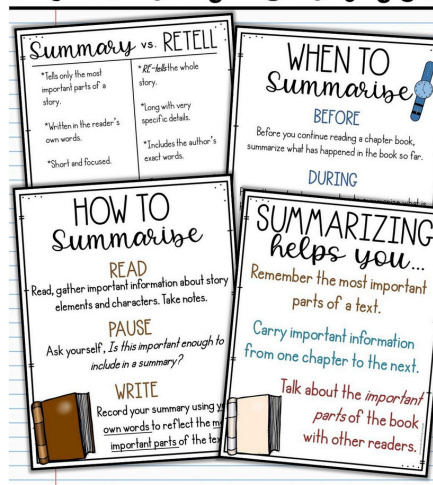 Summary vs. RETELL
*Tells only the most
important parts of a
story.
*Written in the reader's
own words.
*Short and focused.
*RE-tells the whole
story.
*Long with very
specific details.
*Includes the author's
exact words.
WHEN TO
Summarise
BEFORE
Before you continue reading a chapter book,
summarize what has happened in the book so far.
DURING
HOW TO
Summarise
READ
Read, gather important information about story
elements and characters. Take notes.
PAUSE
Ask yourself, Is this important enough to
include in a summary?
WRITE
Record your summary using
own words to reflect the
important parts of the
SUMMARIZING
helps you...
Remember the most important
parts of a text.
Carry important information
from one chapter to the next.
Talk about the important
parts of the book
with other readers.